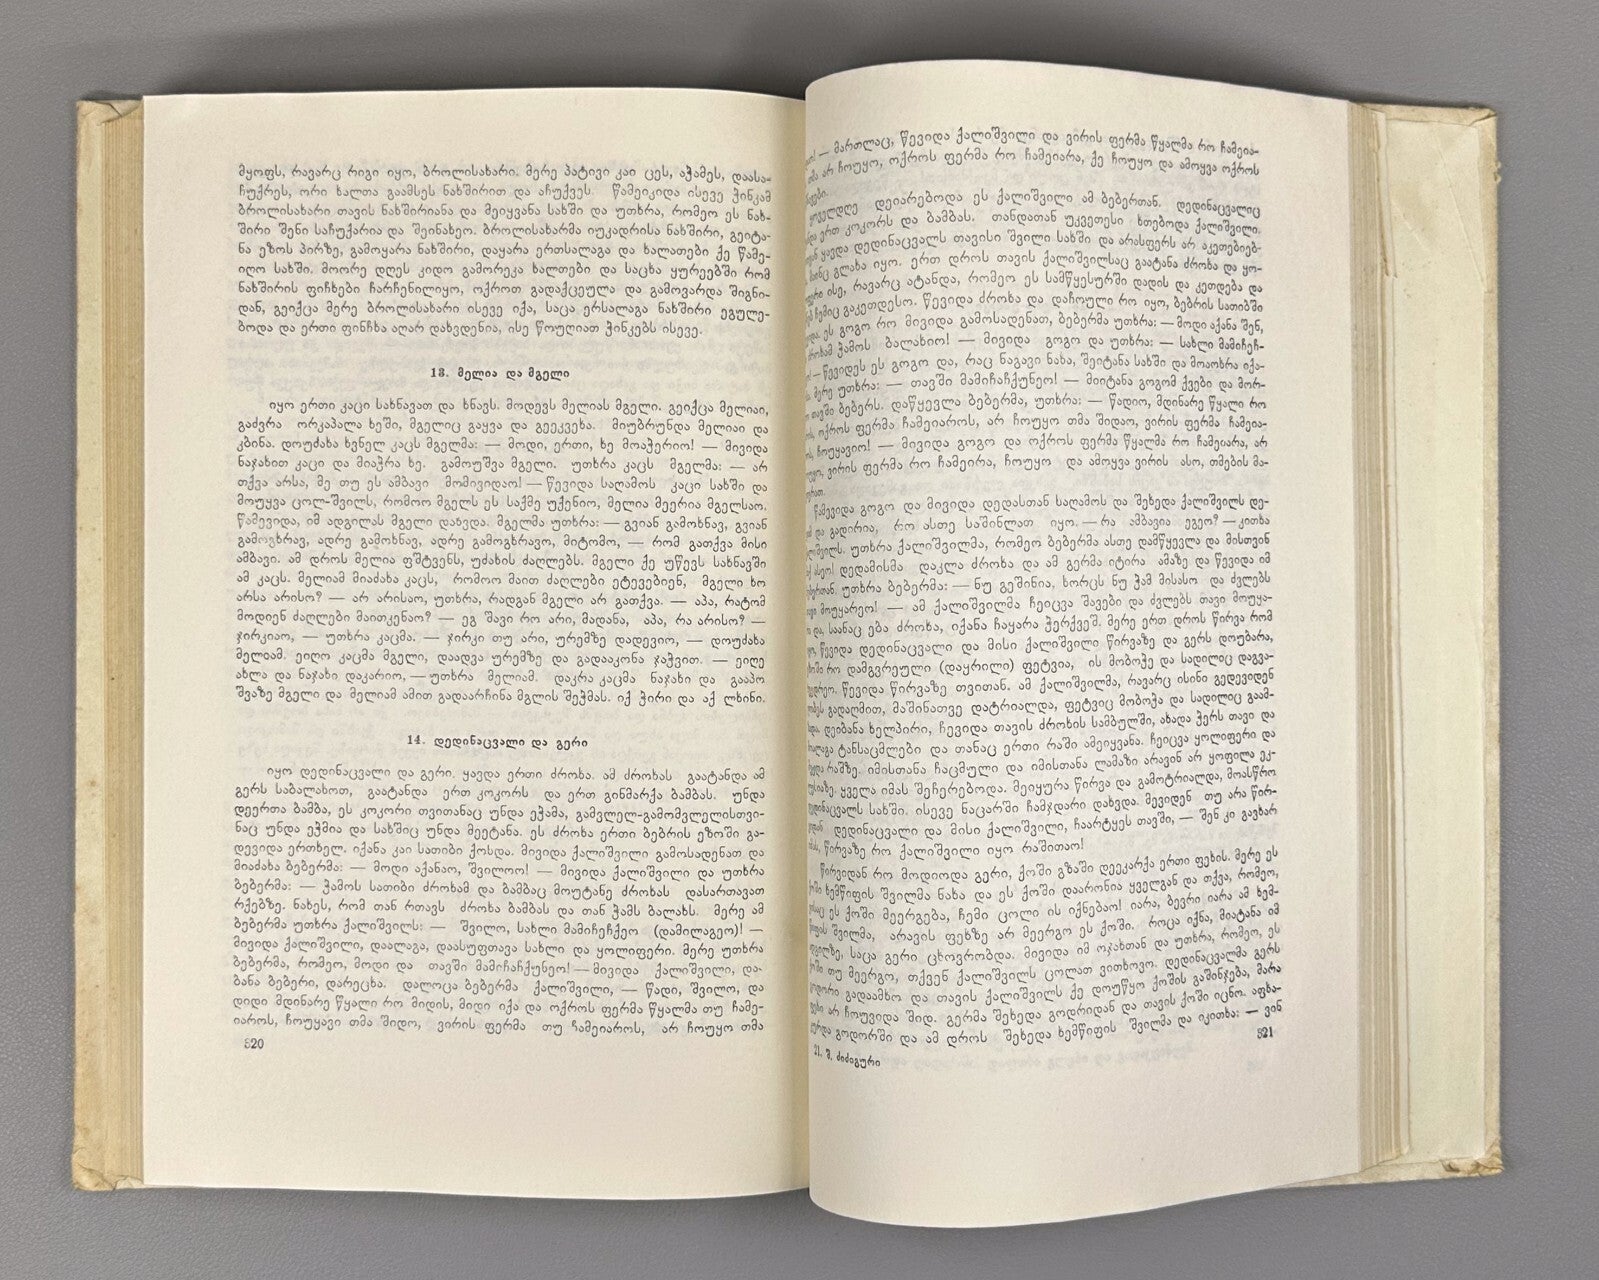 მყოფს, რავარც რიგი იყო, ბროლისახარი. მერე პატივი კაი ცეს, აჭამეს, დაასა-
ჩუქრეს, ორი ხალთა გაამსეს ნახშირით და აჩუქვეს. წამეიკიდა ისევე ჭინკამ
ბროლისახარი თავის ნახშირიანა და მეიყვანა სახში და უთხრა, რომეო ეს ნახ-
შირი შენი საჩუქარია და შეინახეო. ბროლისახარმა იუკადრისა ნახშირი, გეიტა-
ნა ეზოს პირზე, გამოყარა ნახშირი, დაყარა ერთსალაგა და ხალათები ქე წამე-
იღო სახში. მოორე დღეს კიდო გამორეკა ხალთები და საცხა ყურეებში რომ
ნახშირის ფიჩხები ჩარჩენილიყო, ოქროთ გადაქცეულა და გამოვარდა შიგნი-
დან, გეიქცა მერე ბროლისახარი ისევე იქა, საცა ერსალაგა ნახშირი ეგულე-
ბოდა და ერთი ფინჩხა აღარ დახვდენია, ისე წოუღიათ ჭინკებს ისევე.
13. მელია და მგელი
იყო ერთი კაცი სახნავათ და ხნავს. მოდევს მელიას მგელი. გეიქცა მელიაი,
გაძვრა ორკაპალა ხეში, მგელიც გაყვა და გეეკვეხა. მიუბრუნდა მელიაი და
კბინა. დოუძახა ხვნელ კაცს მგელმა: — მოდი, ერთი, ხე მოაჭერიო! — მივიდა
ნაჯახით კაცი და მიაჭრა ხე. გამოუშვა მგელი. უთხრა კაცს მგელმა: — არ
თქვა არსა, მე თუ ეს ამბავი მომივიდაო! — წევიდა საღამოს კაცი სახში და
მოუყვა ცოლ-შვილს, რომოო მგელს ეს საქმე უქენიო, მელია მეერია მგელსაო.
წამევიდა, იმ ადგილას მგელი დახვდა. მგელმა უთხრა: — გვიან გამოხნავ, გვიან
გამოგხრავ, ადრე გამოხნავ, ადრე გამოგხრავო, მიტომო, — რომ გათქვა მისი
ამბავი. ამ დროს მელია ფშტვენს, უძახის ძაღლებს. მგელი ქე უწევს სახნავში
ამ კაცს. მელიამ მიაძახა კაცს, რომოო მაით ძაღლები ეტევებიენ, მგელი ხო
არსა არისო? — არ არისაო, უთხრა, რადგან მგელი არ გათქვა. — აპა, რატომ
მოდიენ ძაღლები მაითკენაო? — ეგ შავი რო არი, მადანა, აპა, რა არისო? —
ჯირკიაო, — უთხრა კაცმა. — ჯირკი თუ არი, ურემზე დადევიო, — დოუძახა
მელიამ. ეიღო კაცმა მგელი, დაადვა ურემზე და გადააკონა ჯაჭვით. — ეიღე
ახლა და ნაჯახი დაკარიო, — უთხრა მელიამ. დაკრა კაცმა ნაჯახი და გააპო
შვაზე მგელი და მელიამ ამით გადაარჩინა მგლის შეჭმას. იქ ჭირი და აქ ლხინი.
14. დედინაცვალი და გერი
იყო დედინაცვალი და გერი. ყავდა ერთი ძროხა. ამ ძროხას გაატანდა ამ
გერს საბალახოთ, გაატანდა ერთ კოკორს და ერთ გინმარქა ბამბას. უნდა
დეერთა ბამბა, ეს კოკორი თვითანაც უნდა ეჭამა, გამვლელ-გამომვლელისთვი-
ნაც უნდა ეჭმია და სახშიც უნდა მეეტანა. ეს ძროხა ერთი ბებრის ეზოში გა-
დევიდა ერთხელ. იქანა კაი სათიბი ქოსდა. მივიდა ქალიშვილი გამოსადენათ და
მიაძახა ბებერმა: — მოდი აქანაო, შვილოო! — მივიდა ქალიშვილი და უთხრა
ბებერმა: — ჭამოს სათიბი ძროხამ და ბამბაც მოუტანე ძროხას დასართავათ
რქებზე. ნახეს, რომ თან რთავს ძროხა ბამბას და თან ჭამს ბალახს. მერე ამ
ბებერმა უთხრა ქალიშვილს: — შვილო, სახლი მამიჩეჩქეო (დამილაგეო)! —
მივიდა ქალიშვილი, დაალაგა, დაასუფთავა სახლი და ყოლიფერი. მერე უთხრა
ბებერმა, რომეო, მოდი და თავში მამიჩაჩქუნეო! — მივიდა ქალიშვილი, და-
ბანა ბებერი, დარეცხა. დალოცა ბებერმა ქალიშვილი, — წადი, შვილო, და
დიდი მდინარე წყალი რო მიდის, მიდი იქა და ოქროს ფერმა წყალმა თუ ჩამე-
იაროს, ჩოუყავი თმა შიდო, ვირის ფერმა თუ ჩამეიაროს, არ ჩოუყო თმა
320
— მართლაც, წევიდა ქალიშვილი და ვირის ფერმა წყალმა რო ჩამეია-
არ ჩოუყო, ოქროს ფერმა რო ჩამეიარა, ქე ჩოუყო და ამოყვა ოქროს
ყოველდღე დეიარებოდა ეს ქალიშვილი ამ ბებერთან. დედინაცვალიც
ერთ კოკორს და ბამბას. თანდათან უკვეთესი ხთებოდა ქალიშვილი.
ყავდა დედინაცვალს თავისი შვილი სახში და არასფერს არ აკეთებიებ-
მაინც გლახა იყო. ერთ დროს თავის ქალიშვილსაც გაატანა ძროხა და ყო-
ისე, რავარც ატანდა, რომეო ეს სამწყესურში დადის და კეთდება და
ჩემიც გაკეთდესო. წევიდა ძროხა და დაჩოული რო იყო, ბებრის სათიბში
ეს გოგო რო მივიდა გამოსადენათ, ბებერმა უთხრა: — მოდი აქანა შენ,
ძროხამ ჭამოს ბალახიო! — მივიდა გოგო და უთხრა: — სახლი მამიჩეჩ-
— წევიდეს ეს გოგო და, რაც ნაგავი ნახა, შეიტანა სახში და მოაოხრა იქა-
მერე უთხრა: — თავში მამიჩაჩქუნეო! — მიიტანა გოგომ ქვები და მორ-
თავში ბებერს. დაწყევლა ბებერმა, უთხრა: — წადიო, მდინარე წყალი რო
ოქროს ფერმა ჩამეიაროს, არ ჩოუყო თმა შიდაო, ვირის ფერმა ჩამეია-
ჩოუყავიო! — მივიდა გოგო და ოქროს ფერმა წყალმა რო ჩამეიარა, არ
ვირის ფერმა რო ჩამეირა, ჩოუყო და ამოყვა ვირის ასო, თმების მა-
წამევიდა გოგო და მივიდა დედასთან საღამოს და შეხედა ქალიშვილს დე-
და გადირია, რო ასთე საშინლათ იყო. — რა ამბავია ეგეო? — კითხა
უთხრა ქალიშვილმა, რომეო ბებერმა ასთე დამწყევლა და მისთვინ
ასეო! დედამისმა დაკლა ძროხა და ამ გერმა იტირა ამაზე და წევიდა იმ
უთხრა ბებერმა: — ნუ გეშინია, ხორცს ნუ ჭამ მისასო და ძვლებს
მოუყარეო! — ამ ქალიშვილმა ჩეიცვა შავები და ძვლებს თავი მოუყა-
და, საანაც ება ძროხა, იქანა ჩაყარა ჭერქვეშ. მერე ერთ დროს წირვა რომ
წევიდა დედინაცვალი და მისი ქალიშვილი წირვაზე და გერს დოუბარა,
რო დამგვრეული (დაყრილი) ფეტვია, ის მობოჭე და სადილიც დაგვა-
წევიდა წირვაზე თვითან. ამ ქალიშვილმა, რავარც ისინი გედევიდენ
გადაღმით, მაშინათვე დატრიალდა, ფეტვიც მობოჭა და სადილიც გაამ-
დეიბანა ხელპირი, ჩევიდა თავის ძროხის სამბულში, ახადა ჭერს თავი და
ტანსაცმლები და თანაც ერთი რაში ამეიყვანა. ჩეიცვა ყოლიფერი და
რაშზე. იმისთანა ჩაცმული და იმისთანა ლამაზი არავინ არ ყოფილა ეკ-
ყველა იმას შეჩერებოდა. მეიყურა წირვა და გამოტრიალდა, მოასწრო
დედინაცვალს სახში. ისევე ნაცარში ჩამჯდარი დახვდა. მევიდენ თუ არა წირ-
დედინაცვალი და მისი ქალიშვილი, ჩაარტყეს თავში, — შენ კი გავხარ
წირვაზე რო ქალიშვილი იყო რაშითაო!
წირვიდან რო მოდიოდა გერი, ქოში გზაში დეეკარქა ერთი ფეხის. მერე ეს
ქოში ხემწიფის შვილმა ნახა და ეს ქოში დაარონია ყველგან და თქვა, რომეო,
ეს ქოში მეერგება, ჩემი ცოლი ის იქნებაო! იარა, ბევრი იარა ამ ხემ-
შვილმა, არავის ფეხზე არ მეერგო ეს ქოში. როცა იქნა, მიატანა იმ
საცა გერი ცხოვრობდა. მივიდა იმ ოჯახთან და უთხრა, რომეო, ეს
ქოში თუ მეერგო, თქვენ ქალიშვილს ცოლათ ვითხოვო. დედინაცვალმა გერს
გოდორი გადაამხო და თავის ქალიშვილს ქე დოუწყო ქოშის გაშინჯება, მარა
არ ჩოუვიდა შიდ. გერმა შეხედა გოდრიდან და თავის ქოში იცნო. აფხა-
გოდორში და ამ დროს შეხედა ხემწიფის შვილმა და იკითხა: — ვინ
21. შ. ძიძიგური
321